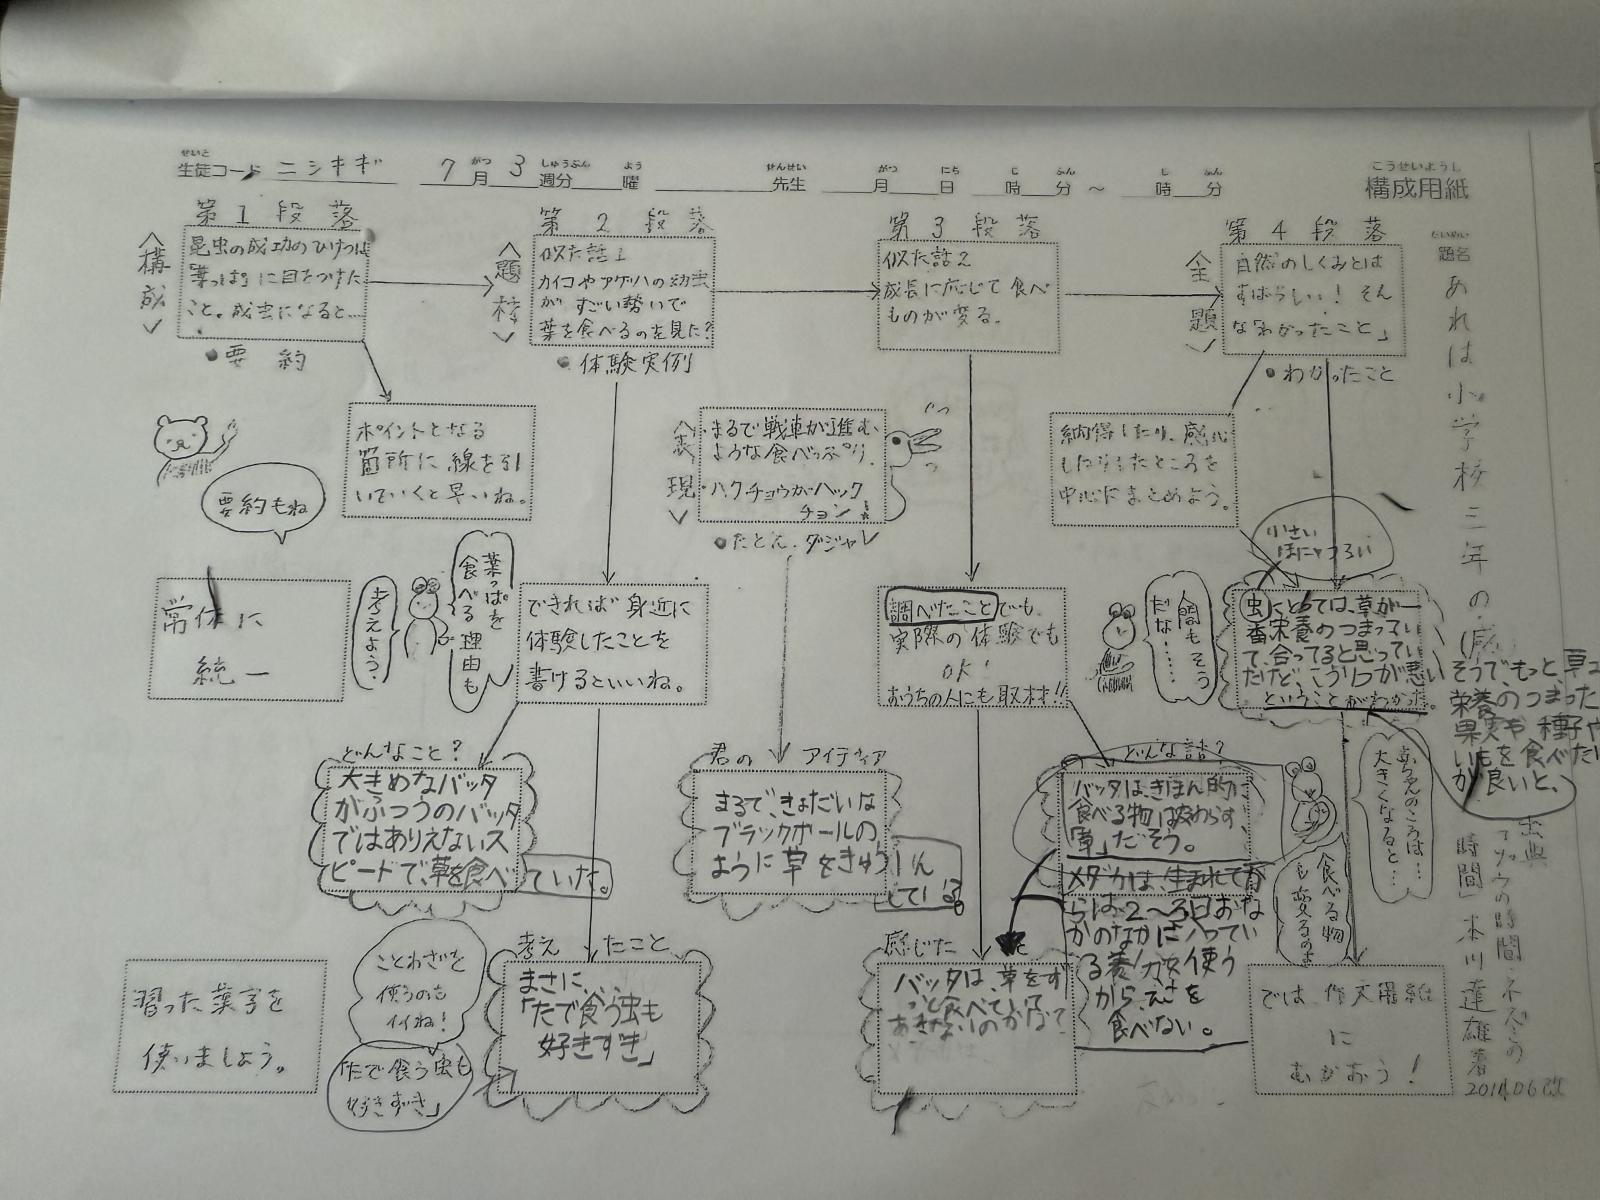 せいと
生徒コード ニシキギ 7月 3週分 曜 先生 月 日 時 分 ～ 時 分
がつ しゅうぶん よう せんせい がつ にち じ ふん じ ふん
こうせいようし
構成用紙
だいめい
題名
あれは小学校三年の
第1段落
<構成>
昆虫の成功のひけつは
「葉っぱ」に目をつけた
こと。成虫になると…
●要約
第2段落
<題材>
似た話1
カイコやアゲハの幼虫
が すごい勢いで
葉を食べるのを見た?
●体験実例
第3段落
似た話2
成長に応じて食べ
ものが変る。
第4段落
<主題>
自然のしくみとは
すばらしい! そん
な「わかったこと」
●わかったこと
ポイントとなる
箇所に線を引
いていくと早いね。
要約もね
<表現>
・まるで戦車が進む
ような食べっぷり。
・ハクチョウがハック
チョン!
●たとえ・ダジャレ
納得したり、感心
したりしたところを
中心にまとめよう。
常体に
統一
葉っぱを
食べる理由も
考えよう。
できれば身近に
体験したことを
書けるといいね。
調べたことでも
実際の体験でも
OK!
おうちの人にも取材!!
人間もそう
だな……
小さい
ほにゅうるい
虫にとっては、草が一
番栄養のつまってい
て、合ってると思ってい
だけど、こうりつが悪い
ということがわかった。
そうで、もっと、草よ
栄養のつまった
果実や種子や
いもを食べたい
が良いと、
どんなこと?
大きめなバッタ
がふつうのバッタ
ではありえないス
ピードで、草を食べ
ていた。
君の アイディア
まるで、きょだいな
ブラックホールの
ように草をきゅういん
している。
どんな話?
バッタは、きほん的に
食べる物は変わらず、
「草」だそう。
メダカは、生まれてか
らは2～3日おな
かのなかに入ってい
る養分を使う
から、えさを
食べない。
赤ちゃんのころは…
大きくなると…
食べる物
も変るのよ
習った漢字を
使いましょう。
ことわざを
使うのも
イイね!
「たで食う虫も
好きずき」
考えたこと
まさに、
「たで食う虫も
好きずき」
感じたこと
バッタは、草をず
っと食べていて
あきないのかな?
では 作文用紙
に
むかおう!
出典
「ゾウの時間・ネズミの
時間」本川達雄著